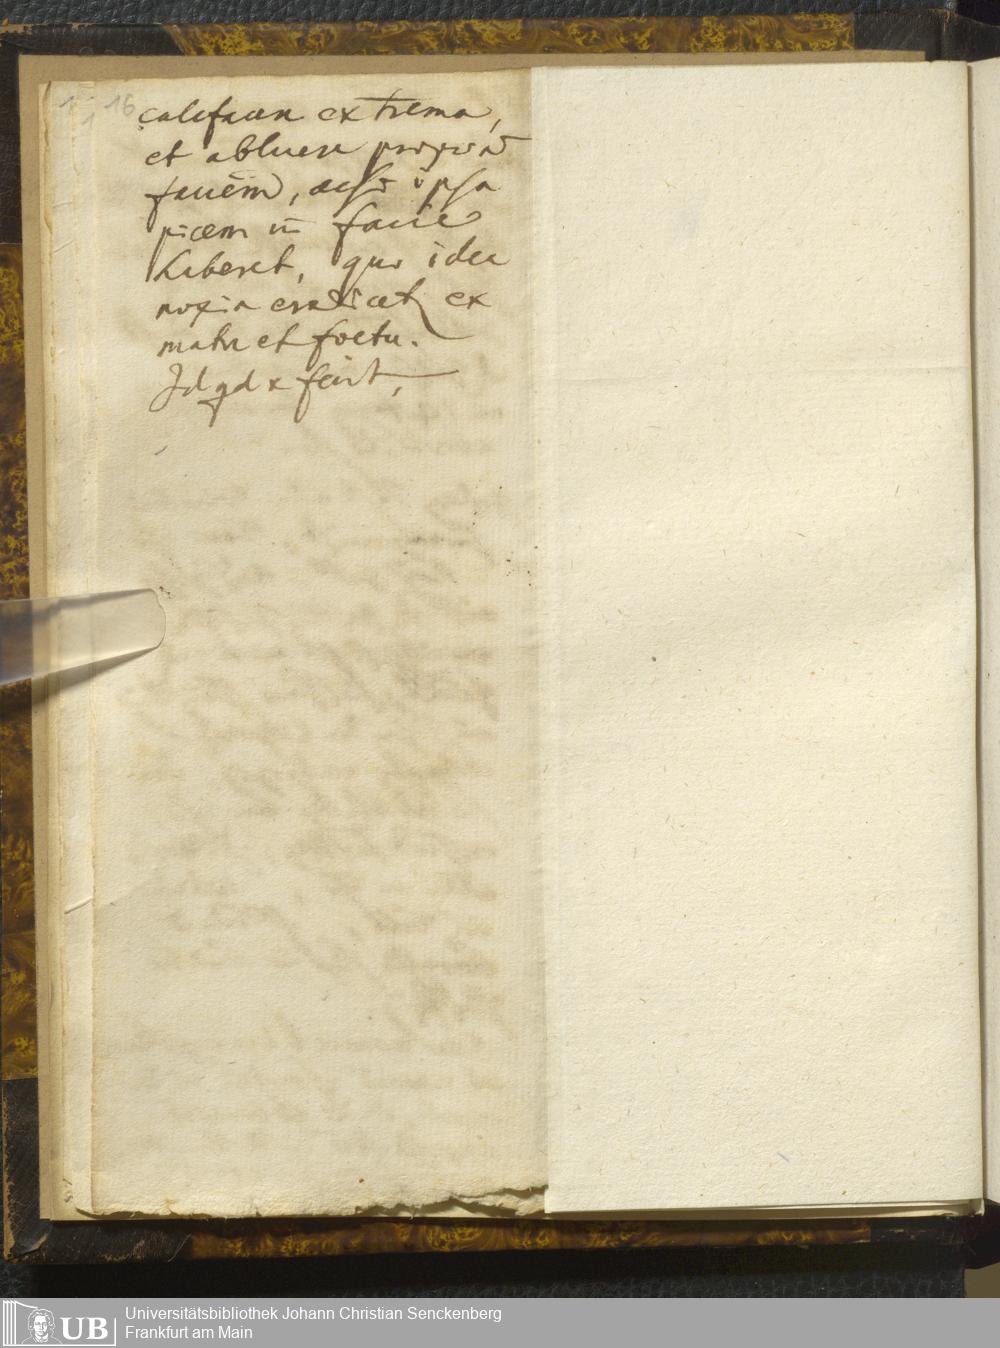 1 16
1
calefacere extrema,
et abluere propria
faciem, acsi ipsa
picem in facie
haberet, quo idea
noxia eradicet ex
matre et foetu.
Id qd x fecit,
UB
Universitätsbibliothek Johann Christian Senckenberg
Frankfurt am Main